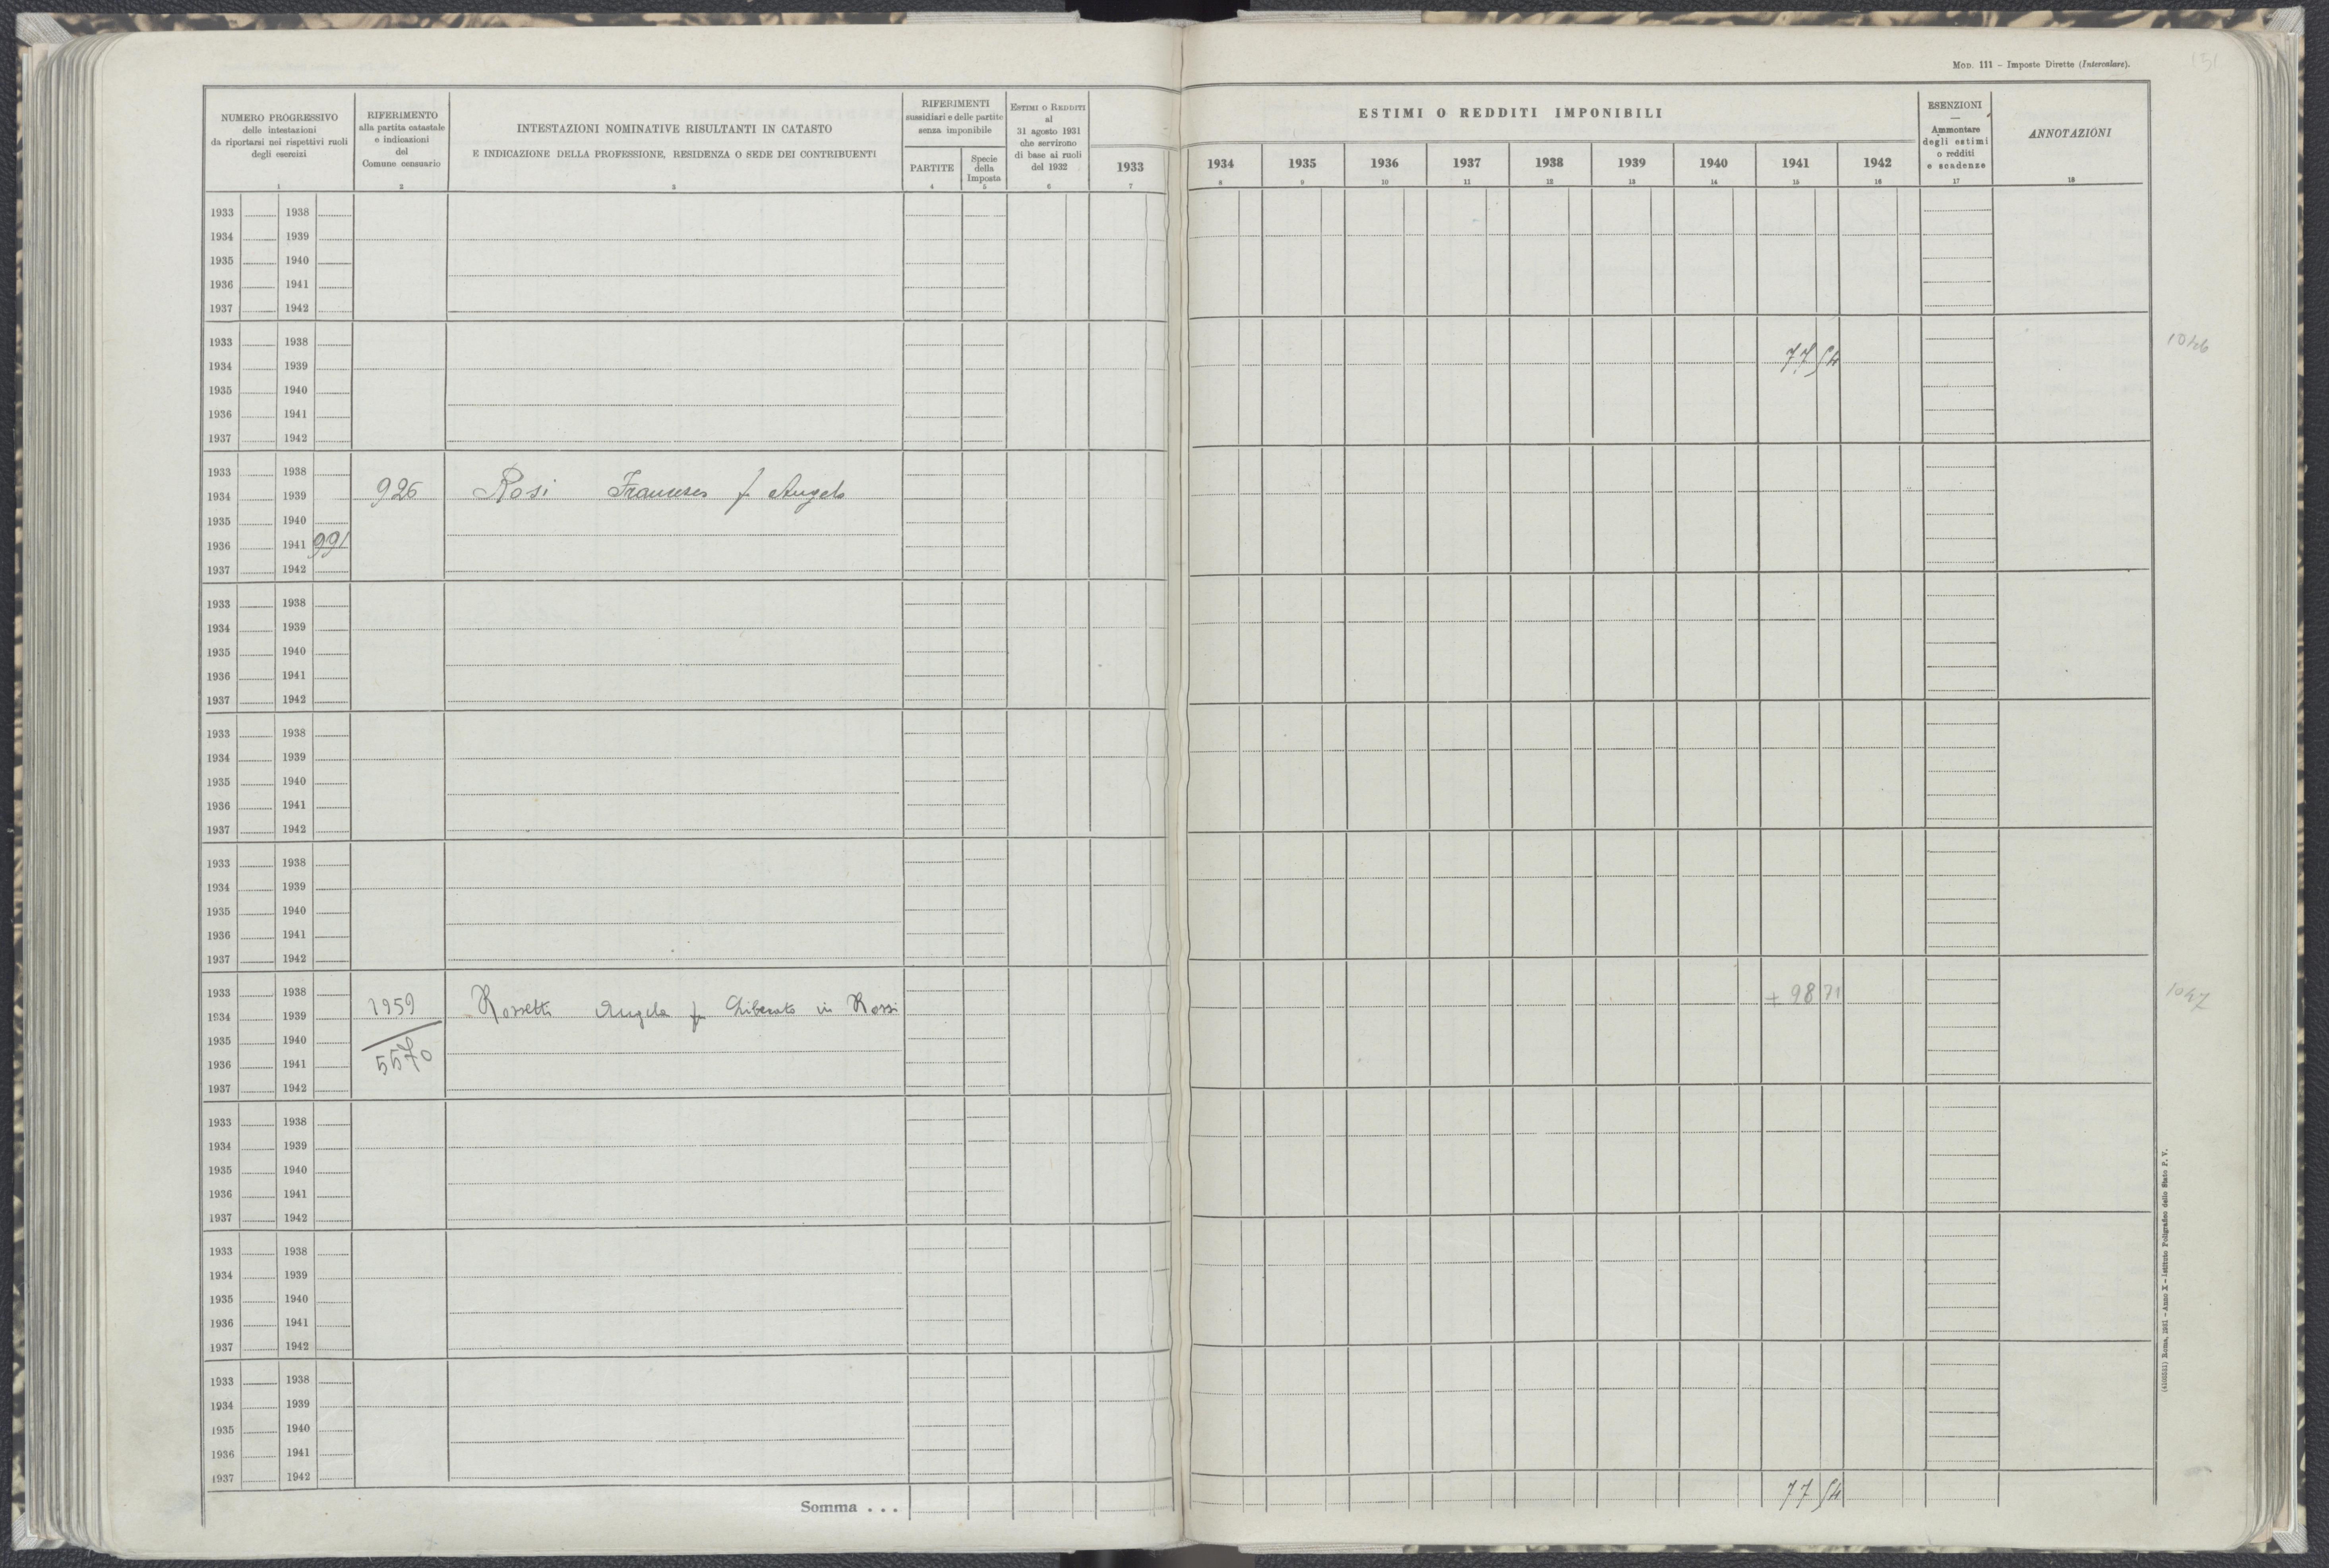 MOD. 111 – Imposte Dirette (Intercalare).
151
NUMERO PROGRESSIVO
delle intestazioni
da riportarsi nei rispettivi ruoli
degli esercizi
1
RIFERIMENTO
alla partita catastale
e indicazioni
del
Comune censuario
2
INTESTAZIONI NOMINATIVE RISULTANTI IN CATASTO
E INDICAZIONE DELLA PROFESSIONE, RESIDENZA O SEDE DEI CONTRIBUENTI
3
RIFERIMENTI
sussidiari e delle partite
senza imponibile
PARTITE
4
Specie
della
Imposta
5
ESTIMI O REDDITI
al
31 agosto 1931
che servirono
di base ai ruoli
del 1932
6
1933
7
ESTIMI O REDDITI IMPONIBILI
1934 1935 1936 1937 1938 1939 1940 1941 1942
8 9 10 11 12 13 14 15 16
ESENZIONI
—
Ammontare
degli estimi
o redditi
e scadenze
17
ANNOTAZIONI
18
1933 1938
1934 1939
1935 1940
1936 1941
1937 1942
1933 1938
1934 1939 77 54 1046
1935 1940
1936 1941
1937 1942
1933 1938
1934 1939 926 Rosi Francesco f Angelo
1935 1940
1936 1941 991
1937 1942
1933 1938
1934 1939
1935 1940
1936 1941
1937 1942
1933 1938
1934 1939
1935 1940
1936 1941
1937 1942
1933 1938
1934 1939
1935 1940
1936 1941
1937 1942
1933 1938
1934 1939 1959 Rossetti Angela fu Liberato in Rossi + 98 71 1047
1935 1940
1936 1941 5570
1937 1942
1933 1938
1934 1939
1935 1940
1936 1941
1937 1942
1933 1938
1934 1939
1935 1940
1936 1941
1937 1942
1933 1938
1934 1939
1935 1940
1936 1941
1937 1942
Somma . . . 77 54
(4105231) Roma, 1931 – Anno X – Istituto Poligrafico dello Stato P. V.